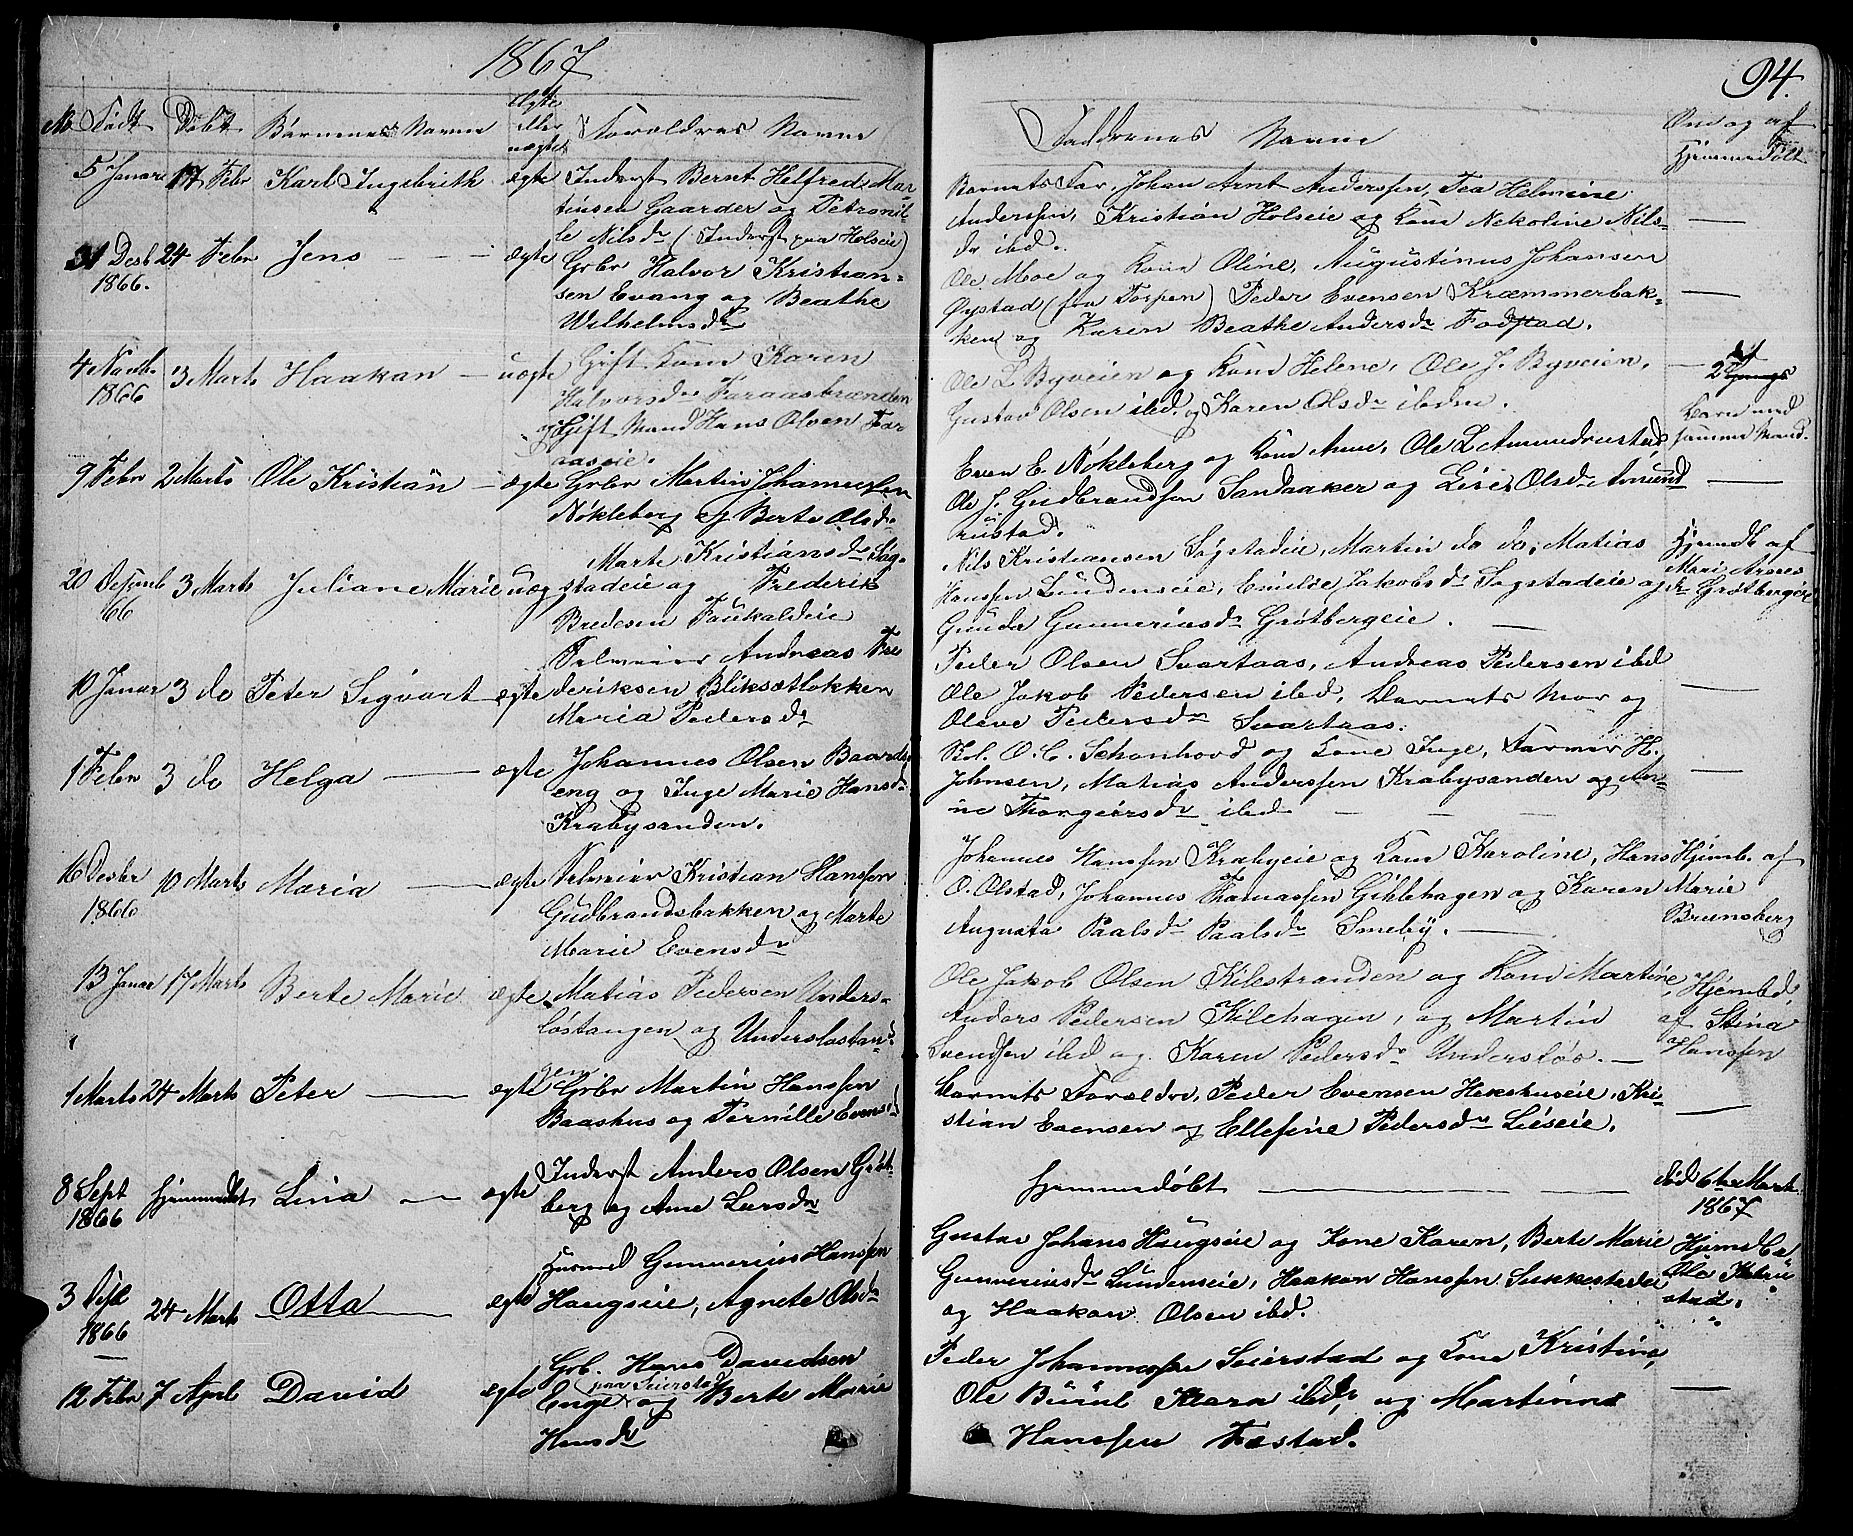 1867
94.
Født Døbt Børnenes Navne Ægte eller uægte Foreldres Navne
Faddrenes Navne Om og af Hjemmedøbt
5 Januar 17 Febr Karl Ingebrith ægte Inderst Bernt Helfred Mar-
tinsen Gaarder og Petronil-
le Nilsdr (Inderst paa Holseie)
Barnets Far, Johan Arnt Anderssen, Tea Helmine
Anderssen, Kristian Holseie og Kone Nekoline Nils-
dr ibd.
31 Desb 24 Febr Jens ægte Grbr Halvor Kristian-
1866. sen Evang og Beathe
Wilhelmsdr
Ole Moe og Kone Oline, Augustinus Johansen
Øystad (fra Torpen) Peder Evensen Kræmmerbak-
ken og Karen Beathe Andersdr Fodstad.
4 Novbr 3 Marts Haakan uægte Gift Kone Karen
1866 Halvorsdr Faraasbrænden
og Gift Mand Hans Olsen Far
aaseie.
Ole L Byveien og Kone Helene, Ole J. Byveien, 2det
Gustav Olsen ibd. og Karen Olsdr ibdm. Barn med
samme Mand.
9 Febr 2 Marts Ole Kristian ægte Grbr Martin Johannessen
Nøkleberg og Berte Olsdr
Even E. Nøkleberg og Kone Anne, Ole L Amundrustad,
Ole J. Gudbrandssen Sandaaker og Lise Olsdr Amund
rustad.
20 Desemb 3 Marts Juliane Marie uæg Marte Kristiansdr Søg-
66 stadeie og Frederik
Bredesen Paukaldeie
Nils Kristiansen Søgstadeie, Martin do do, Matias Hjemdb af
Hanssen Lundenseie, Emilse Jakobsdr Sogstadeie og Mari Arnes
Gunda Gunneriusdr Grøtbergeie. dr Grøtbergeie
10 Januar 3 do Peter Sigvart ægte Selveier Andreas Fre
deriksen Bliksætløkken
Maria Pedersdr
Peder Olsen Svartaas, Andreas Pedersen ibd
Ole Jakob Pedersen ibd, Barnets Mor og
Oleve Pedersdr Svartaas.
1 Febr 3 do Helga ægte Johannes Olsen Baards
eng og Inge Marie Hansdr
Krabysanden.
Bol. O. C. Schonhovd og Kone Inge, Farmor H.
Johnsen, Matias Anderssen Krabysanden og An-
ne Thorgeirsdr ibd
16 Desbr 10 Marts Maria ægte Selveier Kristian Hanssen
1866 Gudbrandsbakken og Marte
Marie Evensdr
Johannes Hanssen Krabyeie og Kone Karoline, Hans Hjemb. af
O. Olstad, Johannes Thomassen Gihlehagen og Karen Marie
Augusta Paalsdr Paalsdr Smeby. Brunsberg
13 Januar 17 Marts Berte Marie ægte Matias Pedersen Unders-
løstangen og Undersløstan-
gen
Ole Jakob Olsen Kilestranden og Kone Martine, Hjembd.
Anders Pedersen Kilehagen, og Martin af Stina
Svendsen ibd og Karen Pedersdr Undersløs. Hanssen
1 Marts 24 Marts Peter ægte Grbr Martin Hanssen
Baashus og Pernille Evensd
Barnets Forældre, Peder Evensen Hekshuseie, Kri-
stian Evensen og Ellefine Pedersdr Lieseie.
8 Sept Hjemmedøbt Lina ægte Inderst Anders Olsen Grøt
1866 berg og Ane Larsdr
Hjemmedøbt død 6te Marts
1867
3 24 Marts Otta ægte Husmd Gunnerius Hanssen
1866 Haugseie, Agnete Olsdr
Gustav Johans Haugseie og Kone Karen, Berte Marie Hjemdb a
Gunneriusdr Lundenseie, Haakon Hanssen Sukkestadeie Ole
og Haakan Olsen ibd. stad.
12 Febr 7 April David ægte Grb. Hans Davidsen
Enge (paa Seierstad) og Berte Marie
Hansdr
Peder Johannessen Seierstad og Kone Kristine,
Ole Buul Klara ibd, og Martinus
Hanssen Fæstad.